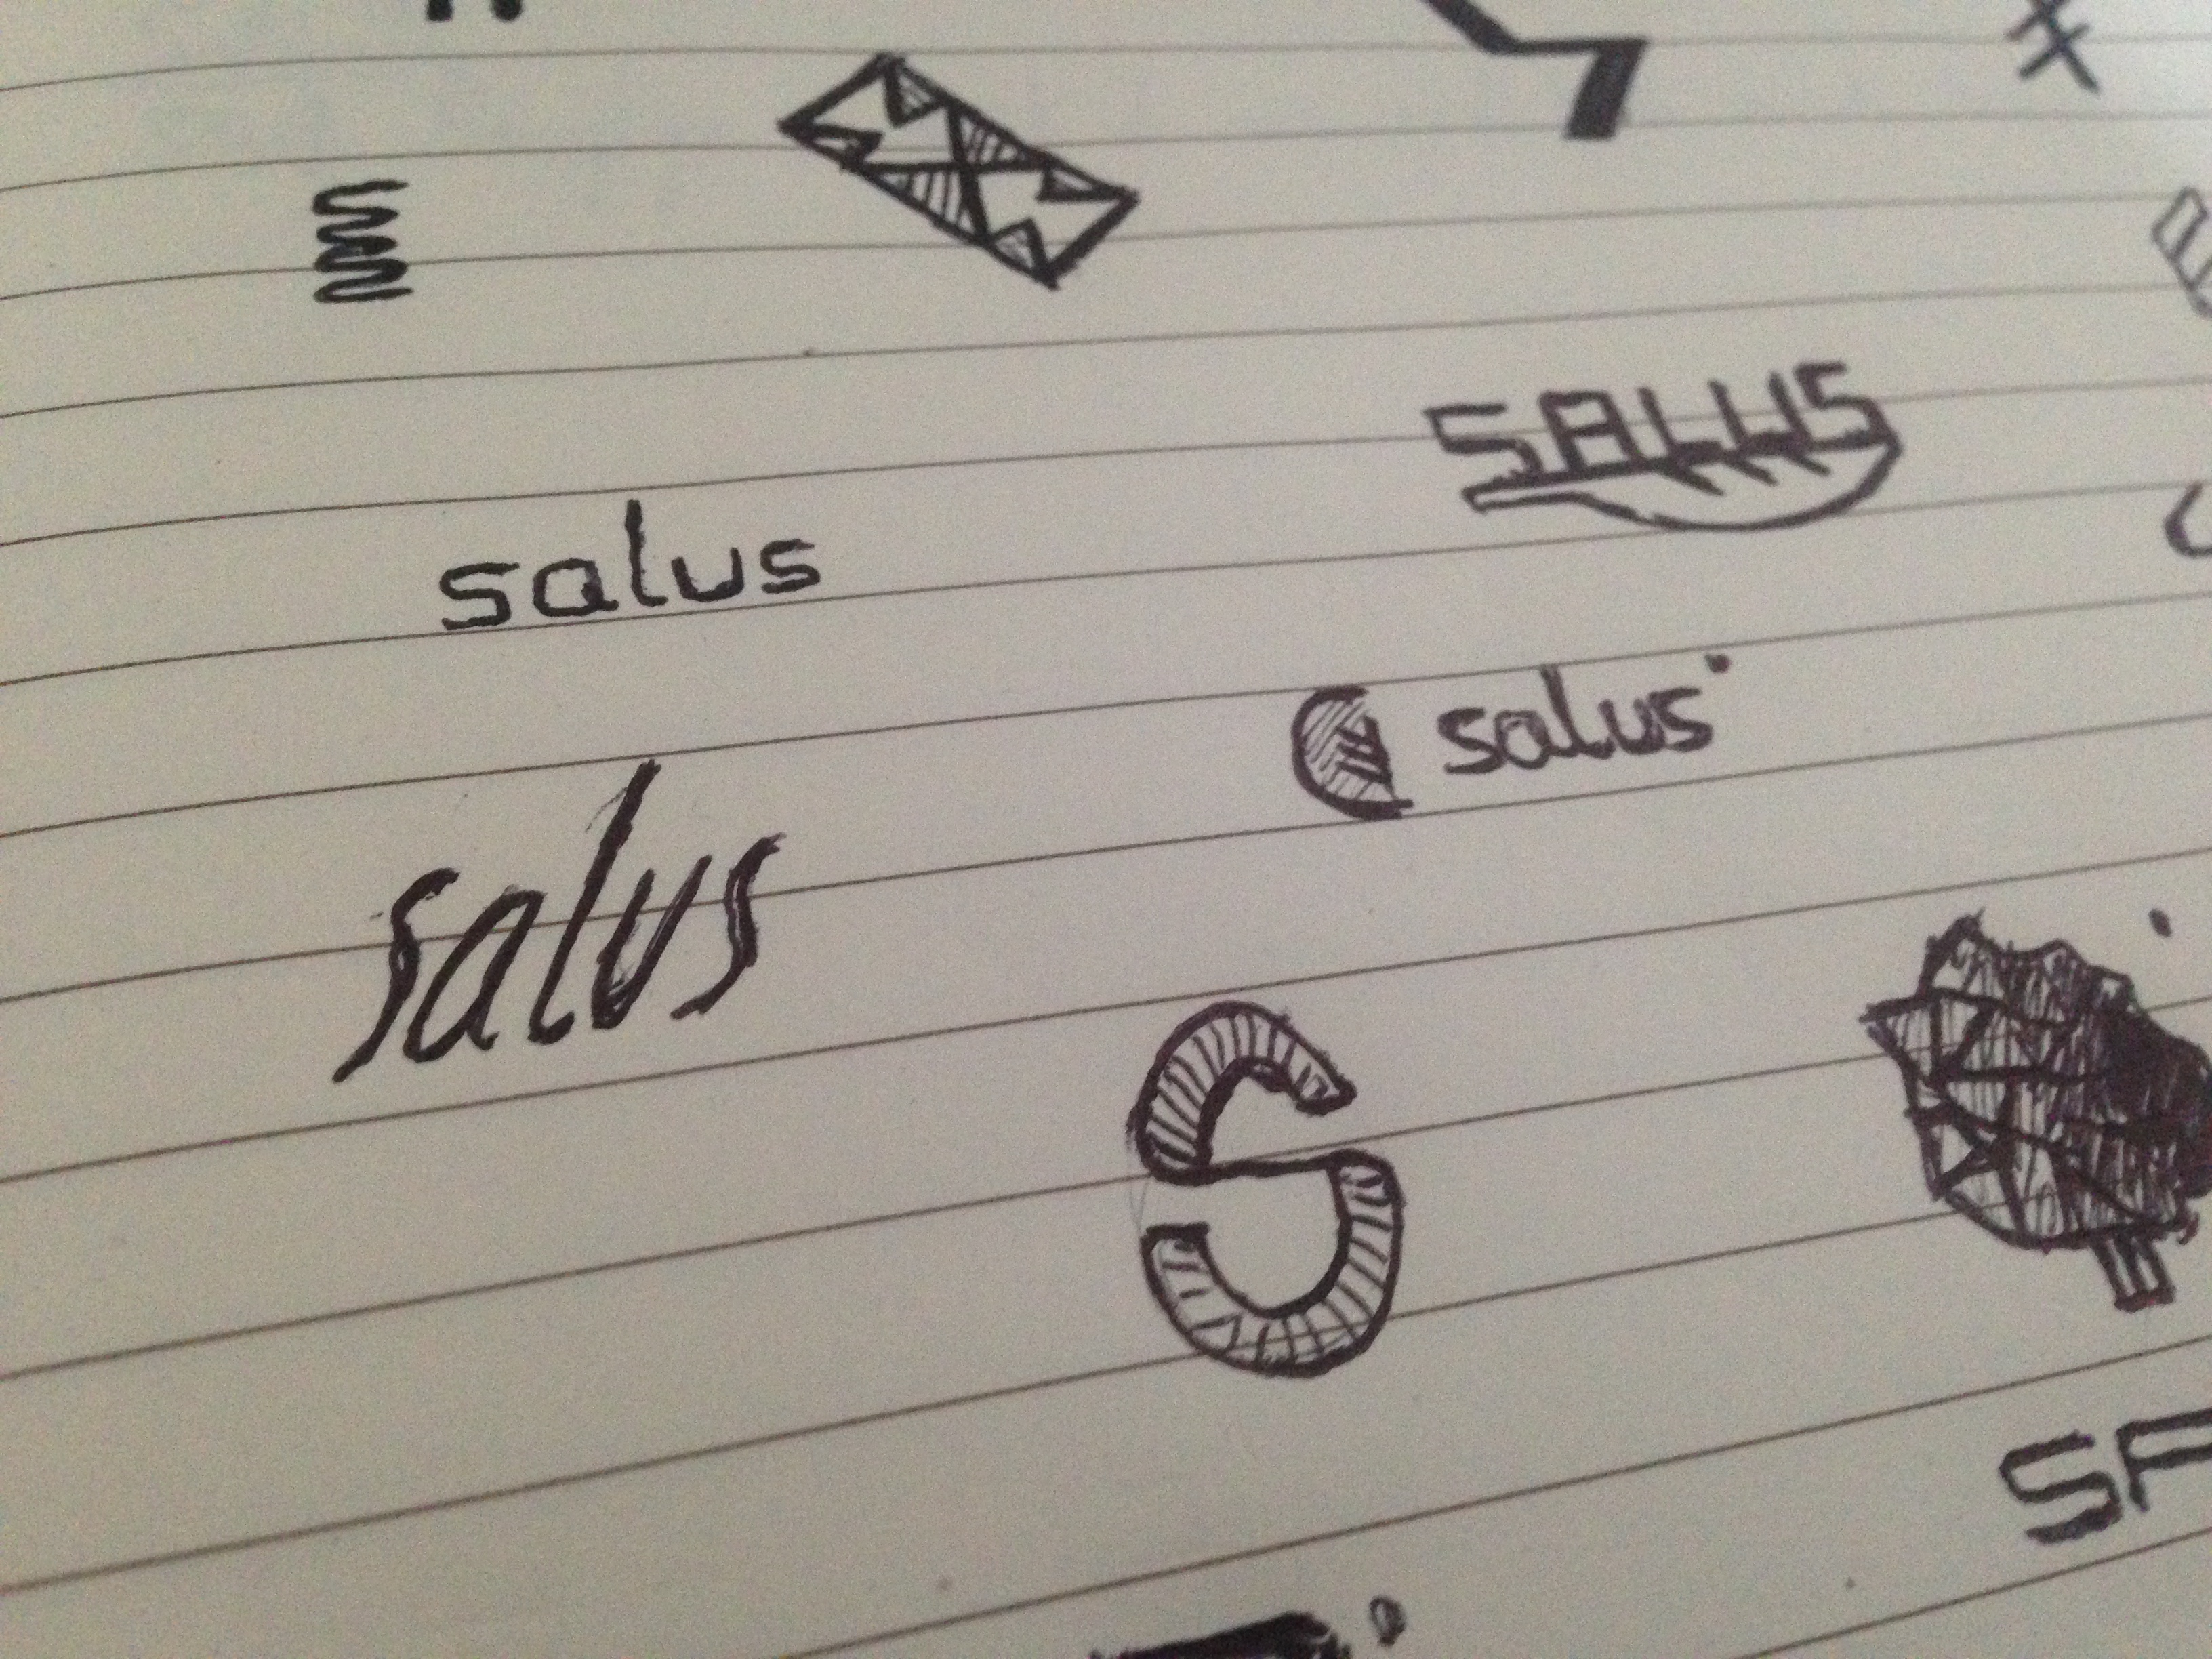 SALUS
salus
salus
salus
S